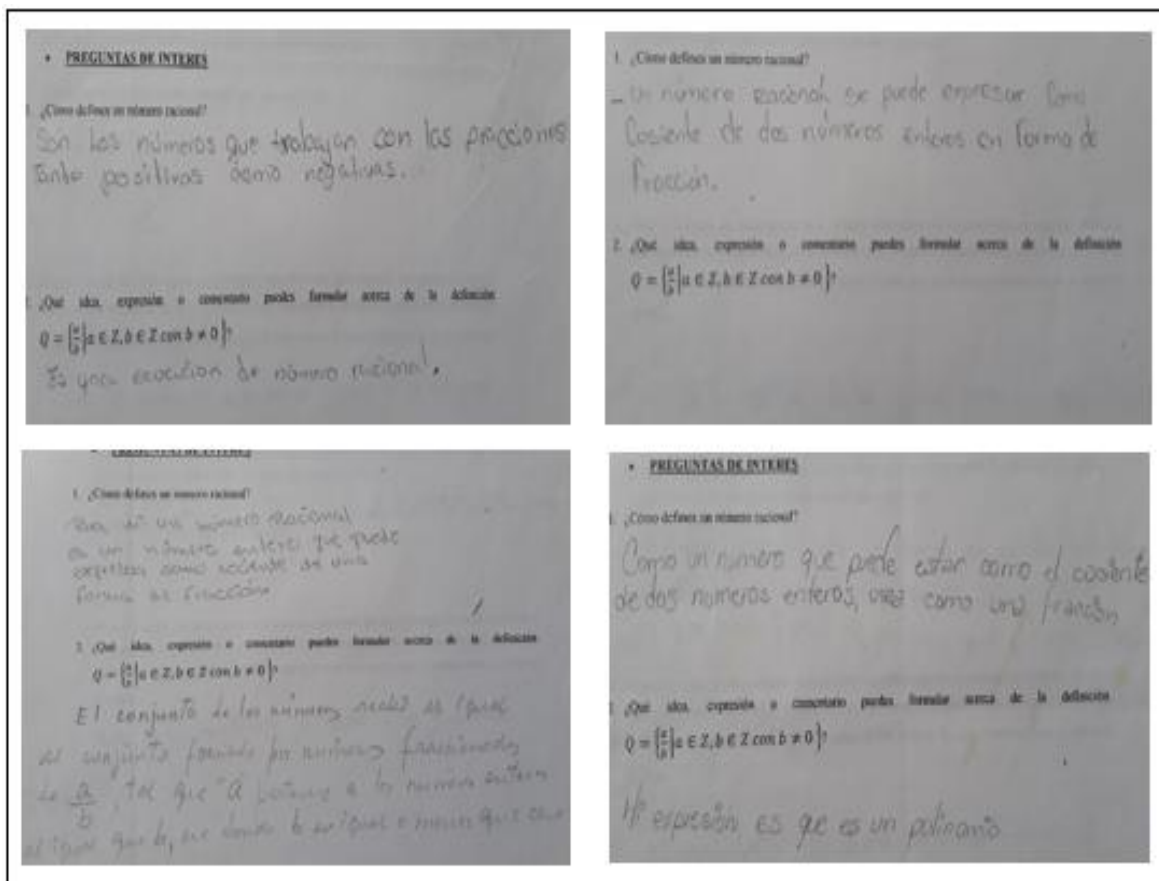 • PREGUNTAS DE INTERES
1. ¿Cómo defines un número racional?
Son los números que trabajan con las fracciones
tanto positivas como negativas.
2. ¿Qué idea, expresión o comentario puedes formular acerca de la definición
Q = {a/b | a ∈ Z, b ∈ Z con b ≠ 0}?
Es una de número racional.
1. ¿Cómo defines un número racional?
- Un número racional se puede expresar como
Cosiente de dos números enteros en forma de
fracción.
2. ¿Qué idea, expresión o comentario puedes formular acerca de la definición
Q = {a/b | a ∈ Z, b ∈ Z con b ≠ 0}?
• PREGUNTAS DE INTERES
1. ¿Cómo defines un número racional?
un número Racional
es un número entero que puede
como de una
forma de fracción
2. ¿Qué idea, expresión o comentario puedes formular acerca de la definición
Q = {a/b | a ∈ Z, b ∈ Z con b ≠ 0}?
El conjunto de los números es igual
al conjunto formado por números
de a/b, tal que "a" a los números enteros
al igual que b, en donde b es igual o menor que cero
• PREGUNTAS DE INTERES
1. ¿Cómo defines un número racional?
Como un número que puede estar como el cosiente
de dos números enteros, como una fracción
2. ¿Qué idea, expresión o comentario puedes formular acerca de la definición
Q = {a/b | a ∈ Z, b ∈ Z con b ≠ 0}?
Mi expresión es que es un polinomio